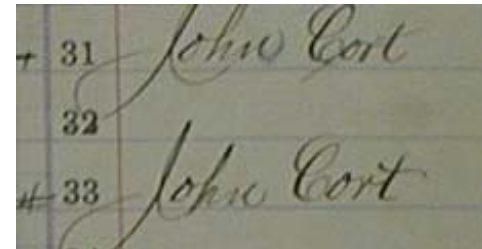 + 31 John Cort
32
# 33 John Cort